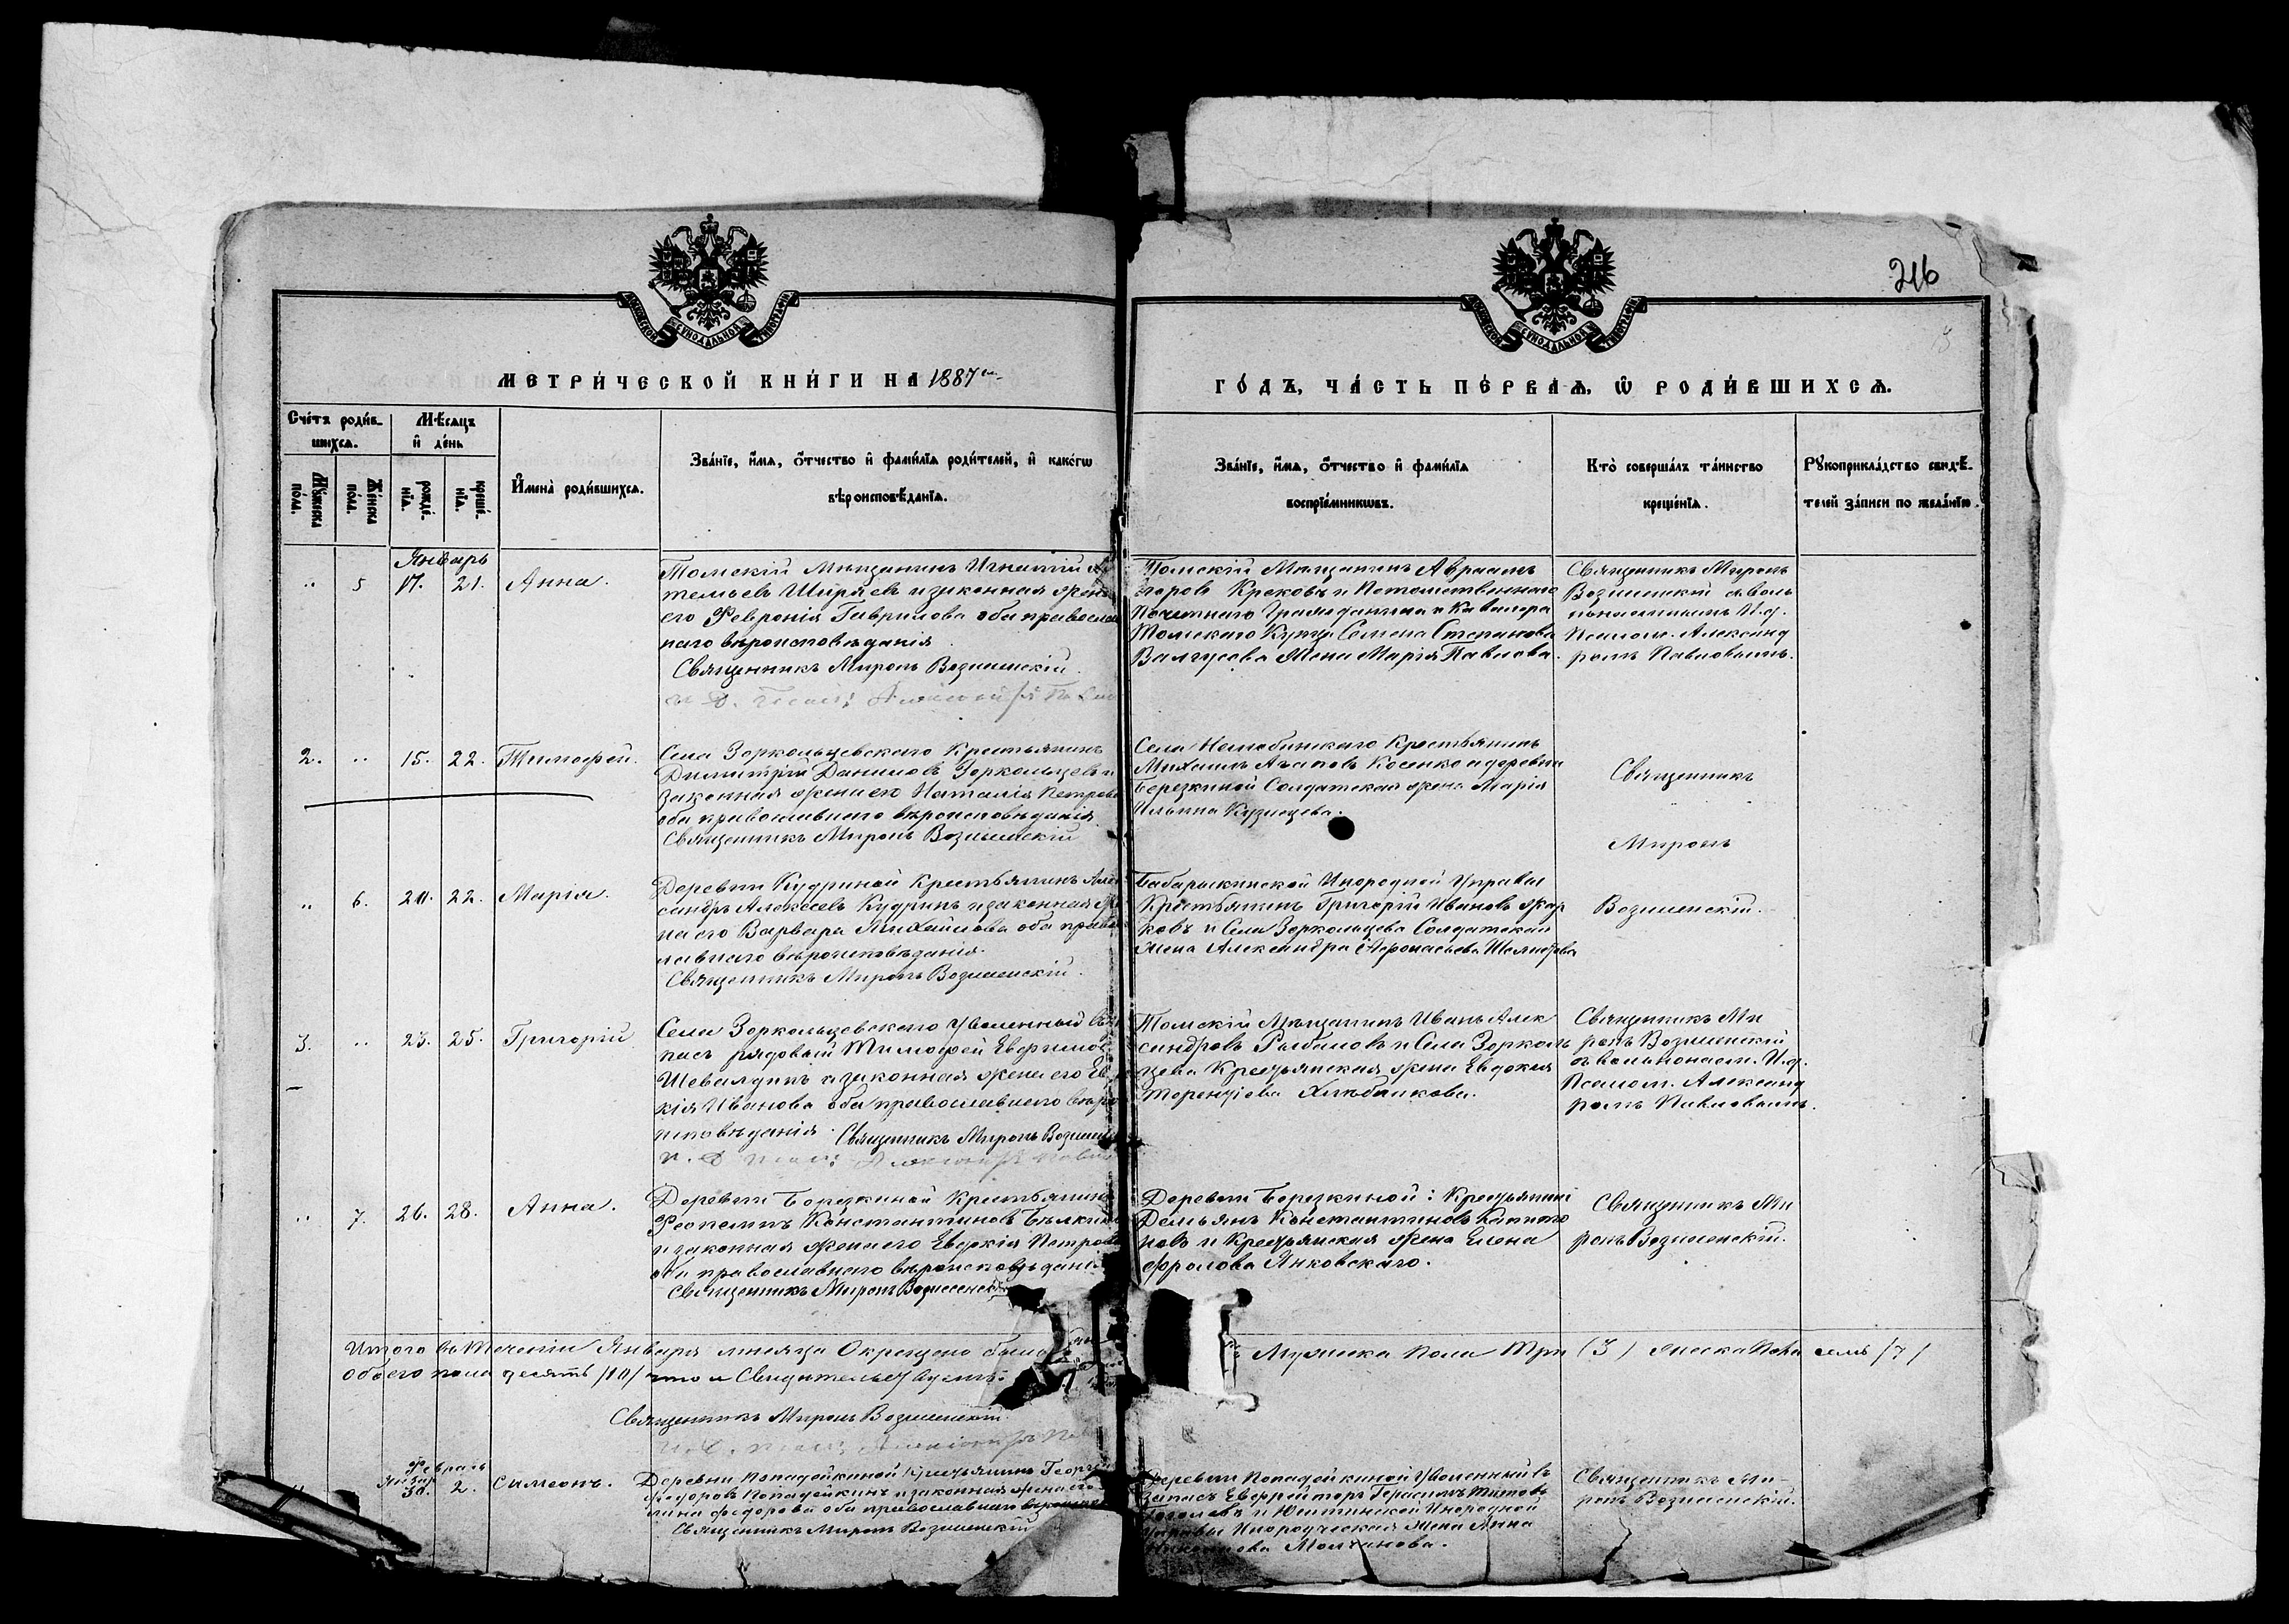 МОСКОВСКОЙ СѴНОДАЛЬНОЙ ТИПОГРАФІИ
МОСКОВСКОЙ СѴНОДАЛЬНОЙ ТИПОГРАФІИ
216
МЕТРИ́ЧЕСКОЙ КНИ́ГИ НА 1887
ГО́ДЪ, ЧА́СТЬ ПЕ́РВАѦ, Ѡ РОДИ́ВШИХСѦ.
Сче́тъ роди́в-
шихсѧ.
Мѣ́сѧцъ
и҆ де́нь
Мꙋ́жеска
по́ла.
Же́нска
по́ла.
рожде́-
нїѧ.
креще́-
нїѧ.
И҆мена̀ роди́вшихсѧ.
Зва́нїе, и҆́мѧ, ѻ҆́тчество и҆ фами́лїѧ роди́телей, и҆ како́гѡ
вѣроисповѣ́данїѧ.
Зва́нїе, и҆́мѧ, ѻ҆́тчество и҆ фами́лїѧ
воспрїе́мникѡвъ.
Кто̀ соверша́лъ та́инство
креще́нїѧ.
Рꙋкоприкла́дство свидѣ́-
телей за́писи по жела́нїю.
Январь
" 5 17. 21. Анна.
Томскій Мѣщанинъ Игнатій
тельевъ Ширяевъ и законная жена
его Февронія Гаврилова оба православ
наго вѣроисповѣданія
Священникъ Миронъ Вознесенскій.
Томскій Мѣщанинъ Авраамъ
Егоровъ Крековъ и Потомственнаго
Почетнаго Гражданина и Кавалера
Томскаго Купца Семена Степанова
Валгусова Жена Марія Павлова.
Священникъ Миронъ
Вознесенскій съ воль
нонаемнымъ И.д.
Псалом. Александ
ромъ Павловымъ.
2. " 15. 22. Тимофей.
Села Зоркольцевскаго Крестьянинъ
Димитрій Даниловъ Зоркольцевъ и
законная жена его Наталія Петрова
оба православнаго вѣроисповѣданія
Священникъ Миронъ Вознесенскій
Села Нелюбинскаго Крестьянинъ
Михаилъ Агаповъ Косенко и деревни
Березкиной Солдатская жена Марія
Ильина Кузнецова.
Священникъ
Миронъ
Вознесенскій.
" 6. 20. 22. Марія.
Деревни Кудриной Крестьянинъ Алек
сандръ Алексеевъ Кудринъ и законная же
на его Варвара Михайлова оба правос
лавнаго вѣроисповѣданія.
Священникъ Миронъ Вознесенскій.
Бабарыкинской Инородной Управы
Крестьянинъ Григорій Ивановъ
ковъ и Села Зоркольцева Солдатская
жена Александра Афонасьева
3. " 23. 25. Григорій
Села Зоркольцевскаго Уволенный въ за
пасъ рядовый Тимофей Евфимовъ
Шевалдинъ и законная жена его Ев
кія Иванова оба православнаго вѣро
исповѣданія. Священникъ Миронъ Вознесен
Томскій Мѣщанинъ Иванъ Алек
сандровъ Рыбаловъ и Села Зорколь
цева Крестьянская жена Евдокия
Терентіева Хлѣбникова.
Священникъ Ми
ронъ Вознесенскій
съ вольнонаем. И.д.
Псалом. Александ
ромъ Павловымъ.
" 7. 26. 28. Анна.
Деревни Березкиной Крестьянинъ
Феопемптъ Константиновъ Бѣлкинъ
и законная жена его Евдокія Петрова
оба православнаго вѣроисповѣданія
Священникъ Миронъ Вознесенскій
Деревни Березкиной: Крестьянинъ
Демьянъ Константиновъ
новъ и Крестьянская жена Елена
Фролова Янковскаго.
Священникъ Ми
ронъ Вознесенскій.
Итого въ Теченіи Января мѣсяца Окрещено было Мужеска Пола Три (3) Женска Пола семь /7/
Обоего пола десять /10/ что и Свидетельствуемъ.
Священникъ Миронъ Вознесенскій.
Февраль
Январ
30. 2. Симеонъ.
Деревни Попадейкиной Крестьянинъ Георгій
Федоровъ Попадейкинъ и законная жена его
лина Федорова оба православнаго вѣроиспов
Священникъ Миронъ Вознесенскій
Деревни Попадейкиной Уволенный въ
запасъ Ефрейторъ Герасимъ Титовъ
Гоголевъ и Юштинской Инородной
Управы Инородческая Жена Анна
Молчанова.
Священникъ Ми-
ронъ Вознесенскій.